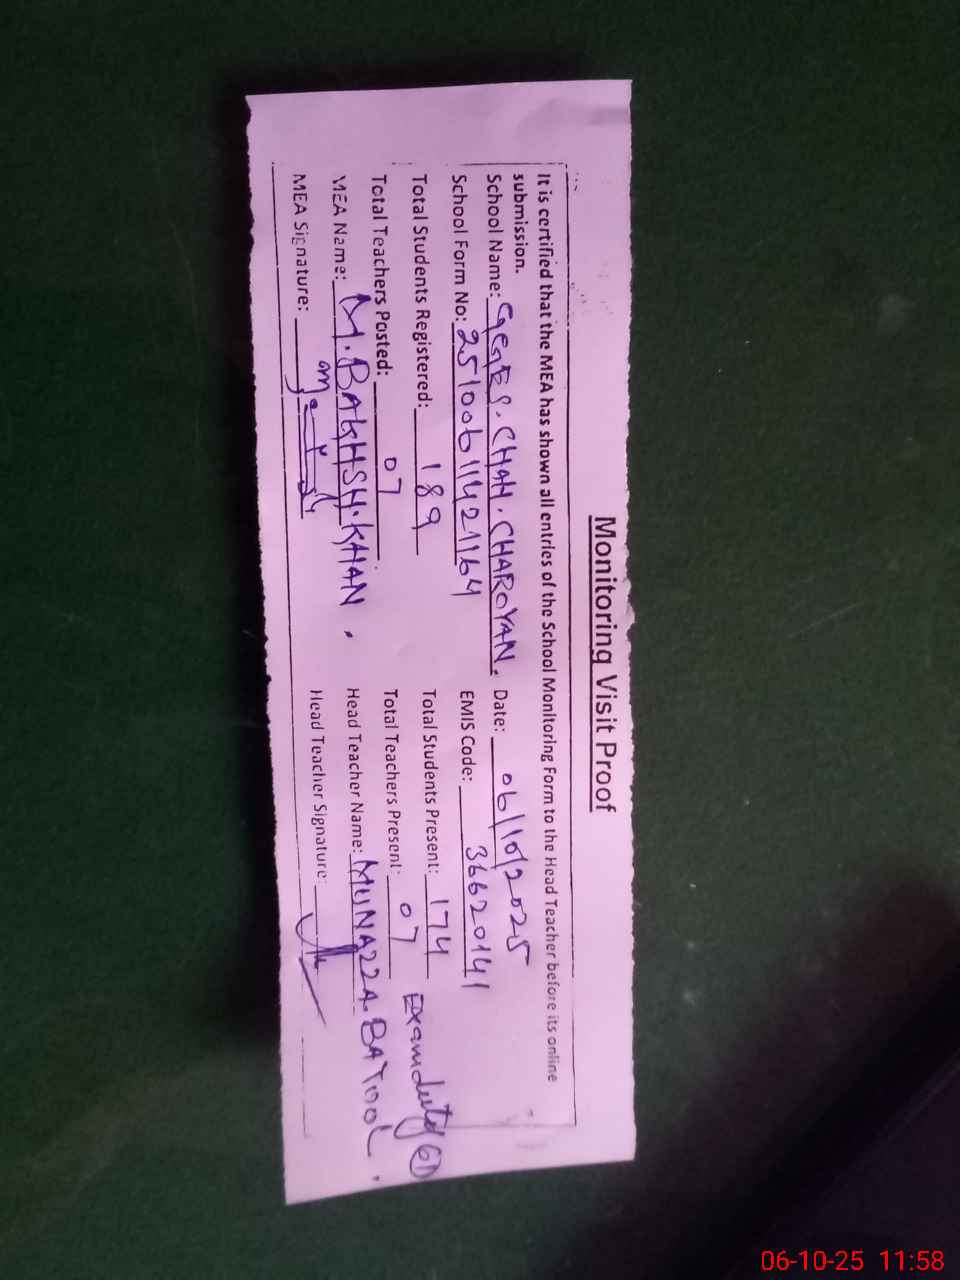 Monitoring Visit Proof
It is certified that the MEA has shown all entries of the School Monitoring Form to the Head Teacher before its online
submission.
School Name: GGES. CHAH. CHAROYAN. Date: 06/10/2025
School Form No: 25100611421164 EMIS Code: 36620141
Total Students Registered: 189 Total Students Present: 174
Total Teachers Posted: 07 Total Teachers Present: 07 Exam duty
MEA Name: M. BAKHSH. KHAN. Head Teacher Name: MUNAZZA. BATOOL.
MEA Signature: Head Teacher Signature:
06-10-25 11:58